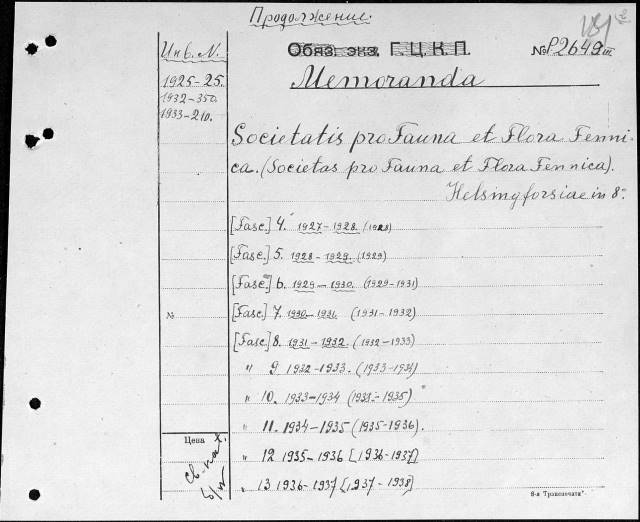 Продолжение.
Инв. N.
1925-25.
1932-350.
1933-210.
Обяз. экз. Г. Ц. К. П.
№P2649III
181
Memoranda
Societatis pro Fauna et Flora Fenni-
ca. (Societas pro Fauna et Flora Fennica).
Helsingforsiae in 8º
[Fasc.] 4. 1927-1928. (1928)
[Fasc.] 5. 1928-1929. (1929)
[Fasc.] 6. 1929-1930. (1929-1931)
№
[Fasc.] 7. 1930-1931. (1931-1932)
[Fasc.] 8. 1931-1932. (1932-1933)
" 9 1932-1933. (1933-1934)
" 10. 1933-1934 (1933-1935)
" 11. 1934-1935 (1935-1936).
" 12 1935-1936 [1936-1937]
" 13 1936-1937 [1937-1938]
Цена
8-я Транспечать